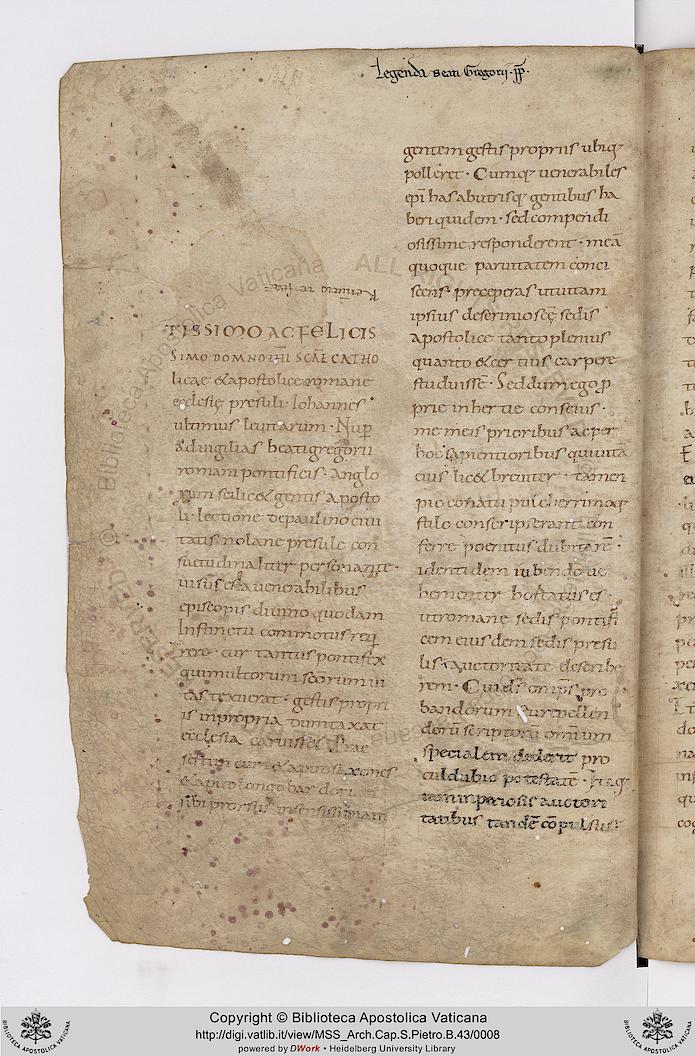 Legenda beati Gregorij pp̄.
TISSIMO AC FELICIS
SIMO DOMNO IOHI SCAE CATHO
licae & apostolice romane
ecclesię presuli. Iohannes
ultimus leuitarum. Nup̄
ad uigilias beati gregorii
romani pontificis. anglo
rum scilic& gentis aposto
li. lectione de paulino ciui
tatis nolane presule con
suetudinaliter personante.
uisus es a uenerabilibus
episcopis diuino quodam
Instinctu commotus req
rere. cur tantus pontifex
qui multorum scorum ui
tas texuerat. gestis propri
is in propria dumtaxat
ecclesia caruisset. Prae
sertim cum & apud saxones
& apud longobardorum
sibi prorsus infensissimam
gentem gestis propriis ubiq;
polleret. Cumq; uenerabiles
epi has ab utrisq; gentibus ha
beri quidem. sed compendi
osissime responderent. meā
quoque paruitatem conci
scens. preceperas ut uitam
ipsius de scrinio scę sedis
apostolice tanto plenius
quanto & certius carpere
studuissē. Sed dum ego p̱
prie inhertie conscius.
me meis prioribus ac per
hoc sapientioribus qui uitā
eius lic& breuiter. tamen
pio conatu pulcherrimoq;
stilo conscripserant. con
ferre poenitus dubitarē.
identidem iubendo ue
hementer hortatus es.
ut romane sedis pontifi
cem eiusdem sedis presu
lis auctoritate describe
rem. Cui ds omps pro
bandorum siue repellen
dorū scriptorū omnium
specialem dederit pro
culdubio potestatē.
tam inperiosis auctori
tatibus tandē cōpulsus.
Copyright © Biblioteca Apostolica Vaticana
http://digi.vatlib.it/view/MSS_Arch.Cap.S.Pietro.B.43/0008
powered by DWork • Heidelberg University Library